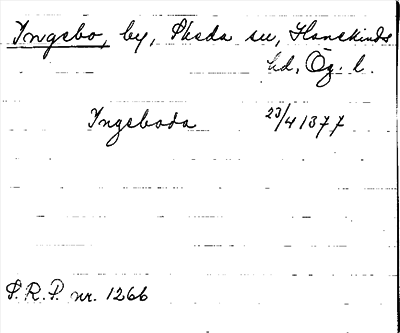 Yngsbo, by, Skeda sn, Hanekinds
hd, Ög. l.
Yngeboda 23/4 1377
P.R.P. nr. 1266